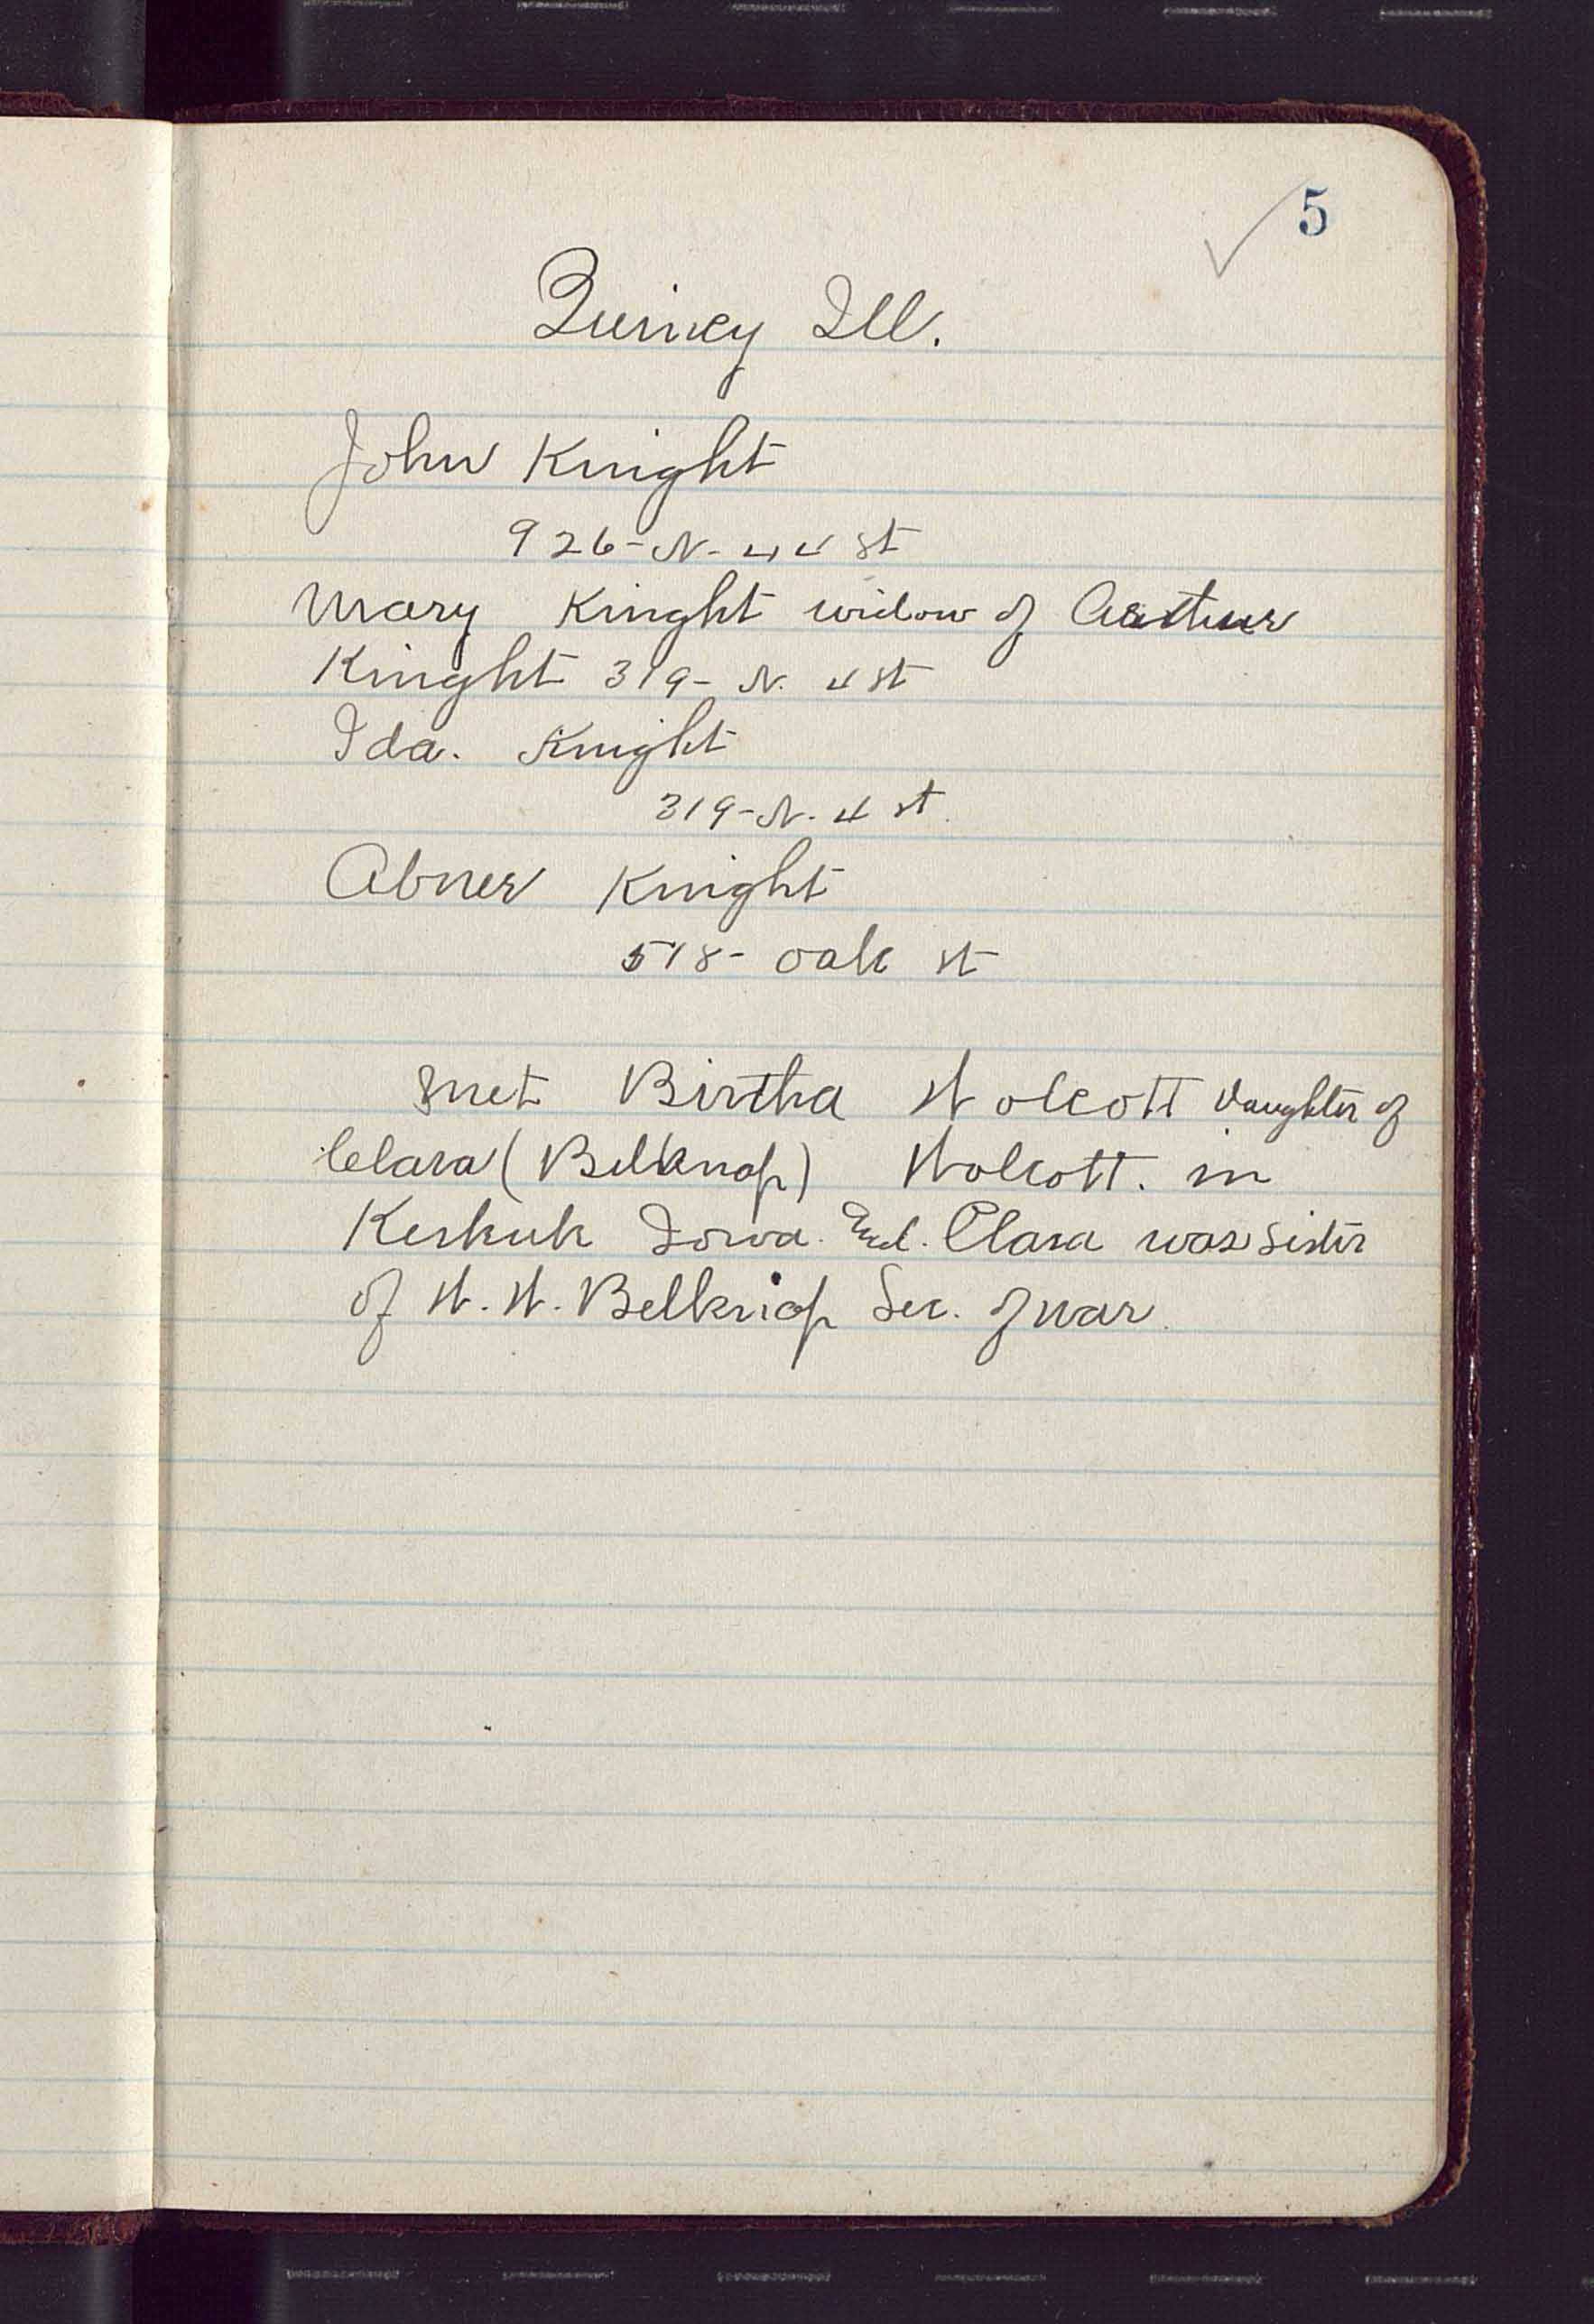 5
Quincy Ill.
John Knight
926-N. 4 st
Mary Knight widow of Arthur
Knight 319- N. 4 st
Ida. Knight
319-N. 4 st.
Abner Knight
518- Oak st
met Birtha Wolcott daughter of
Clara (Belknap) Wolcott. in
Keokuk Iowa. Clara was sister
of W. W. Belknap Sec. of war.